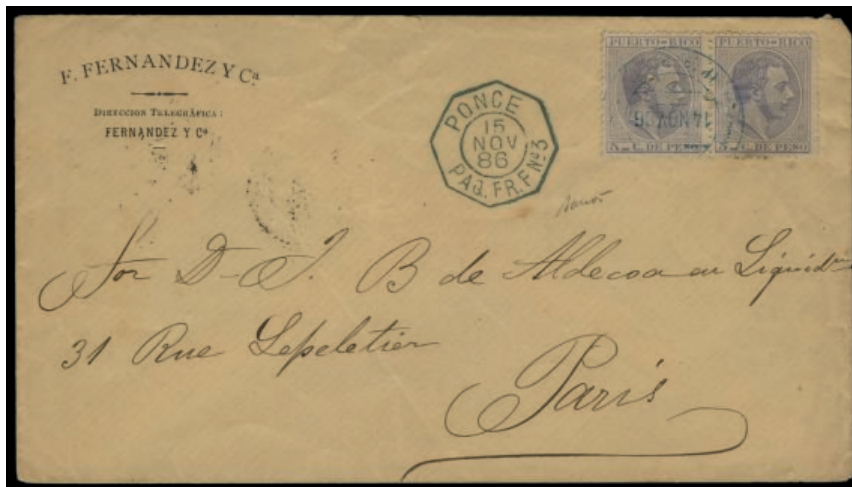 F. FERNANDEZ Y Cª
DIRECCION TELEGRÁFICA:
FERNANDEZ Y Cª
PONCE
15
NOV
86
PAQ. FR. F Nº3
PUERTO-RICO
PUERTO-RICO
14 NOV 86
5 C. DE PESO
5 C. DE PESO
Sor D. J. B de Aldecoa en Liquidon
31 Rue Lepeletier
Paris